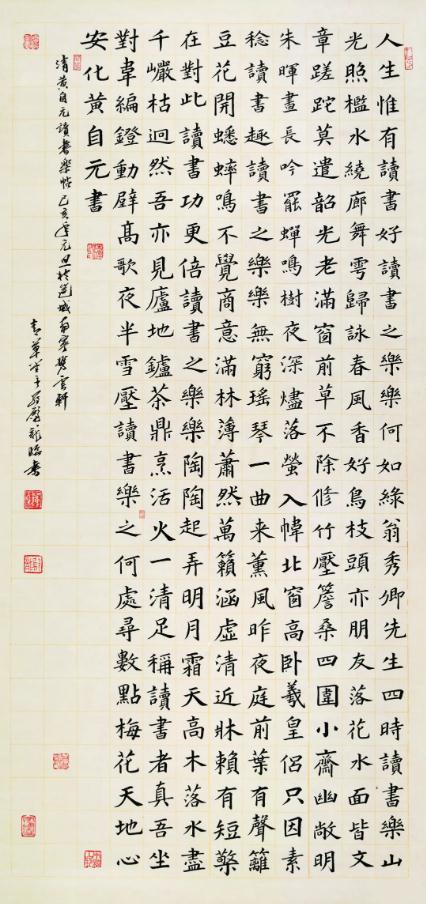 人生惟有讀書好讀書之樂樂何如綠翁秀卿先生四時讀書樂山
光照檻水繞廊舞雩歸詠春風香好鳥枝頭亦朋友落花水面皆文
章蹉跎莫遣韶光老滿窗前草不除修竹壓簷桑四圍小齋幽敞明
朱暉晝長吟罷蟬鳴樹夜深燼落螢入幃北窗高卧羲皇侶只因素
稔讀書趣讀書之樂樂無窮瑤琴一曲来薰風昨夜庭前葉有聲籬
豆花開蟋蟀鳴不覺商意滿林薄蕭然萬籟涵虛清近牀賴有短檠
在對此讀書功更倍讀書之樂樂陶陶起弄明月霜天高木落水盡
千巖枯迥然吾亦見廬地鑪茶鼎烹活火一清足稱讀書者真吾坐
對韋編鐙動壁高歌夜半雪壓讀書樂之何處尋數點梅花天地心
安化黃自元書
清黃自元讀書樂帖己亥年元旦於邕城南寧雲軒
青草臨書